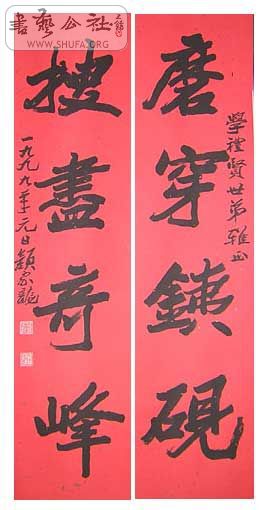 書藝公社
WWW.SHUFA.ORG
學禮賢世弟雅正
磨穿銕硯
搜盡奇峰
一九九九年元日顏家龍